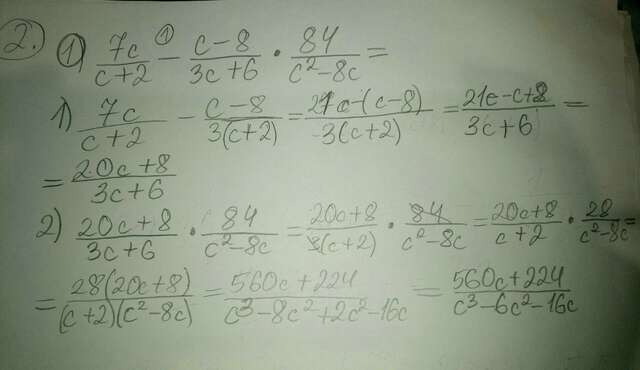 2. 1) 7c/(c+2) ① - (c-8)/(3c+6) · 84/(c²-8c) =
1) 7c/(c+2) - (c-8)/(3(c+2)) = (21c-(c-8))/(3(c+2)) = (21c-c+8)/(3c+6) =
= (20c+8)/(3c+6)
2) (20c+8)/(3c+6) · 84/(c²-8c) = (20c+8)/(3(c+2)) · 84/(c²-8c) = (20c+8)/(c+2) · 28/(c²-8c) =
= 28(20c+8)/((c+2)(c²-8c)) = (560c+224)/(c³-8c²+2c²-16c) = (560c+224)/(c³-6c²-16c)